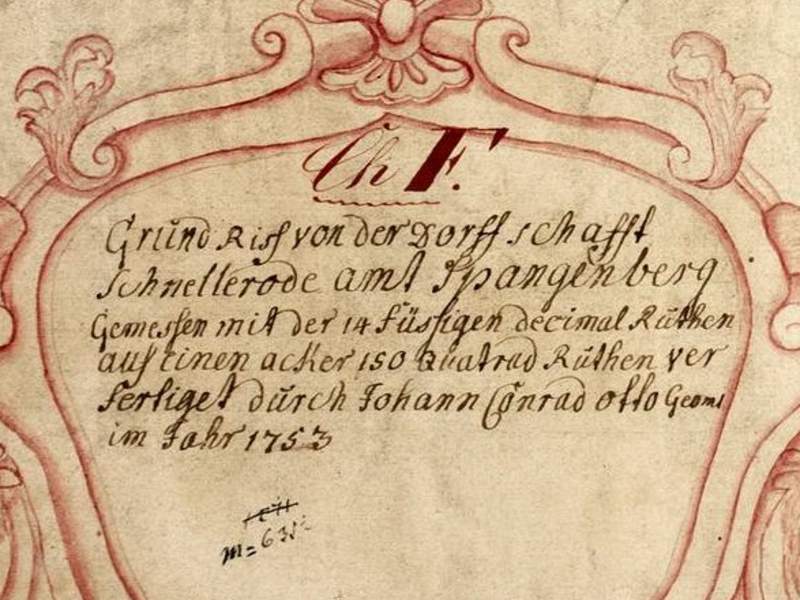 Ch F.
Grund Riss von der Dorff schafft
Schnellerode amt Spangenberg
Gemessen mit der 14 füssigen decimal Ruthen
auf einen acker 150 Quatrad Ruthen ver
fertiget durch Johann Conrad Otto Geom:
im Jahr 1753